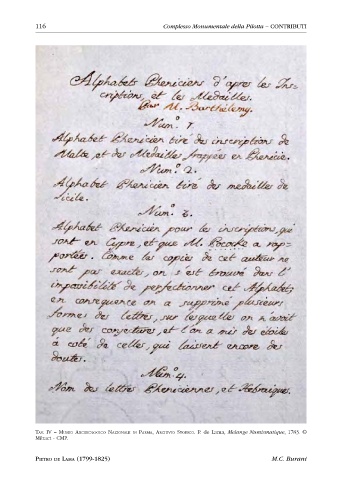 116
Complesso Monumentale della Pilotta – CONTRIBUTI
Alphabets Pheniciens d'apres les Ins-
criptions, et les Medailles.
Par M. Barthélemy.
Num.º 1.
Alphabet Phenicien tiré des inscriptions de
Malte, et des Medailles frappées en Phenicie.
Num.º 2.
Alphabet Phenicien tiré des medailles de
Sicile.
Num.º 3.
Alphabet Phenicien pour les inscriptions, qui
sont en Cypre, et que M. Pococke a rap-
portées. Comme les copies de cet auteur ne
sont pas exactes, on s'est trouvé dans l'
impossibilité de perfectionner cet Alphabet,
en consequence on a supprimé plusieurs
formes des lettres, sur lesquelles on n'avoit
que des conjectures, et l'on a mis des étoiles
à coté de celles, qui laissent encore des
doutes.
Num.º 4.
Nom des lettres Pheniciennes, et Hebraiques.
TAV. IV – MUSEO ARCHEOLOGICO NAZIONALE DI PARMA, ARCHIVIO STORICO. P. de Lama, Melange Numismatique, 1783. ©
MIBACT - CMP.
PIETRO DE LAMA (1799-1825)
M.C. Burani